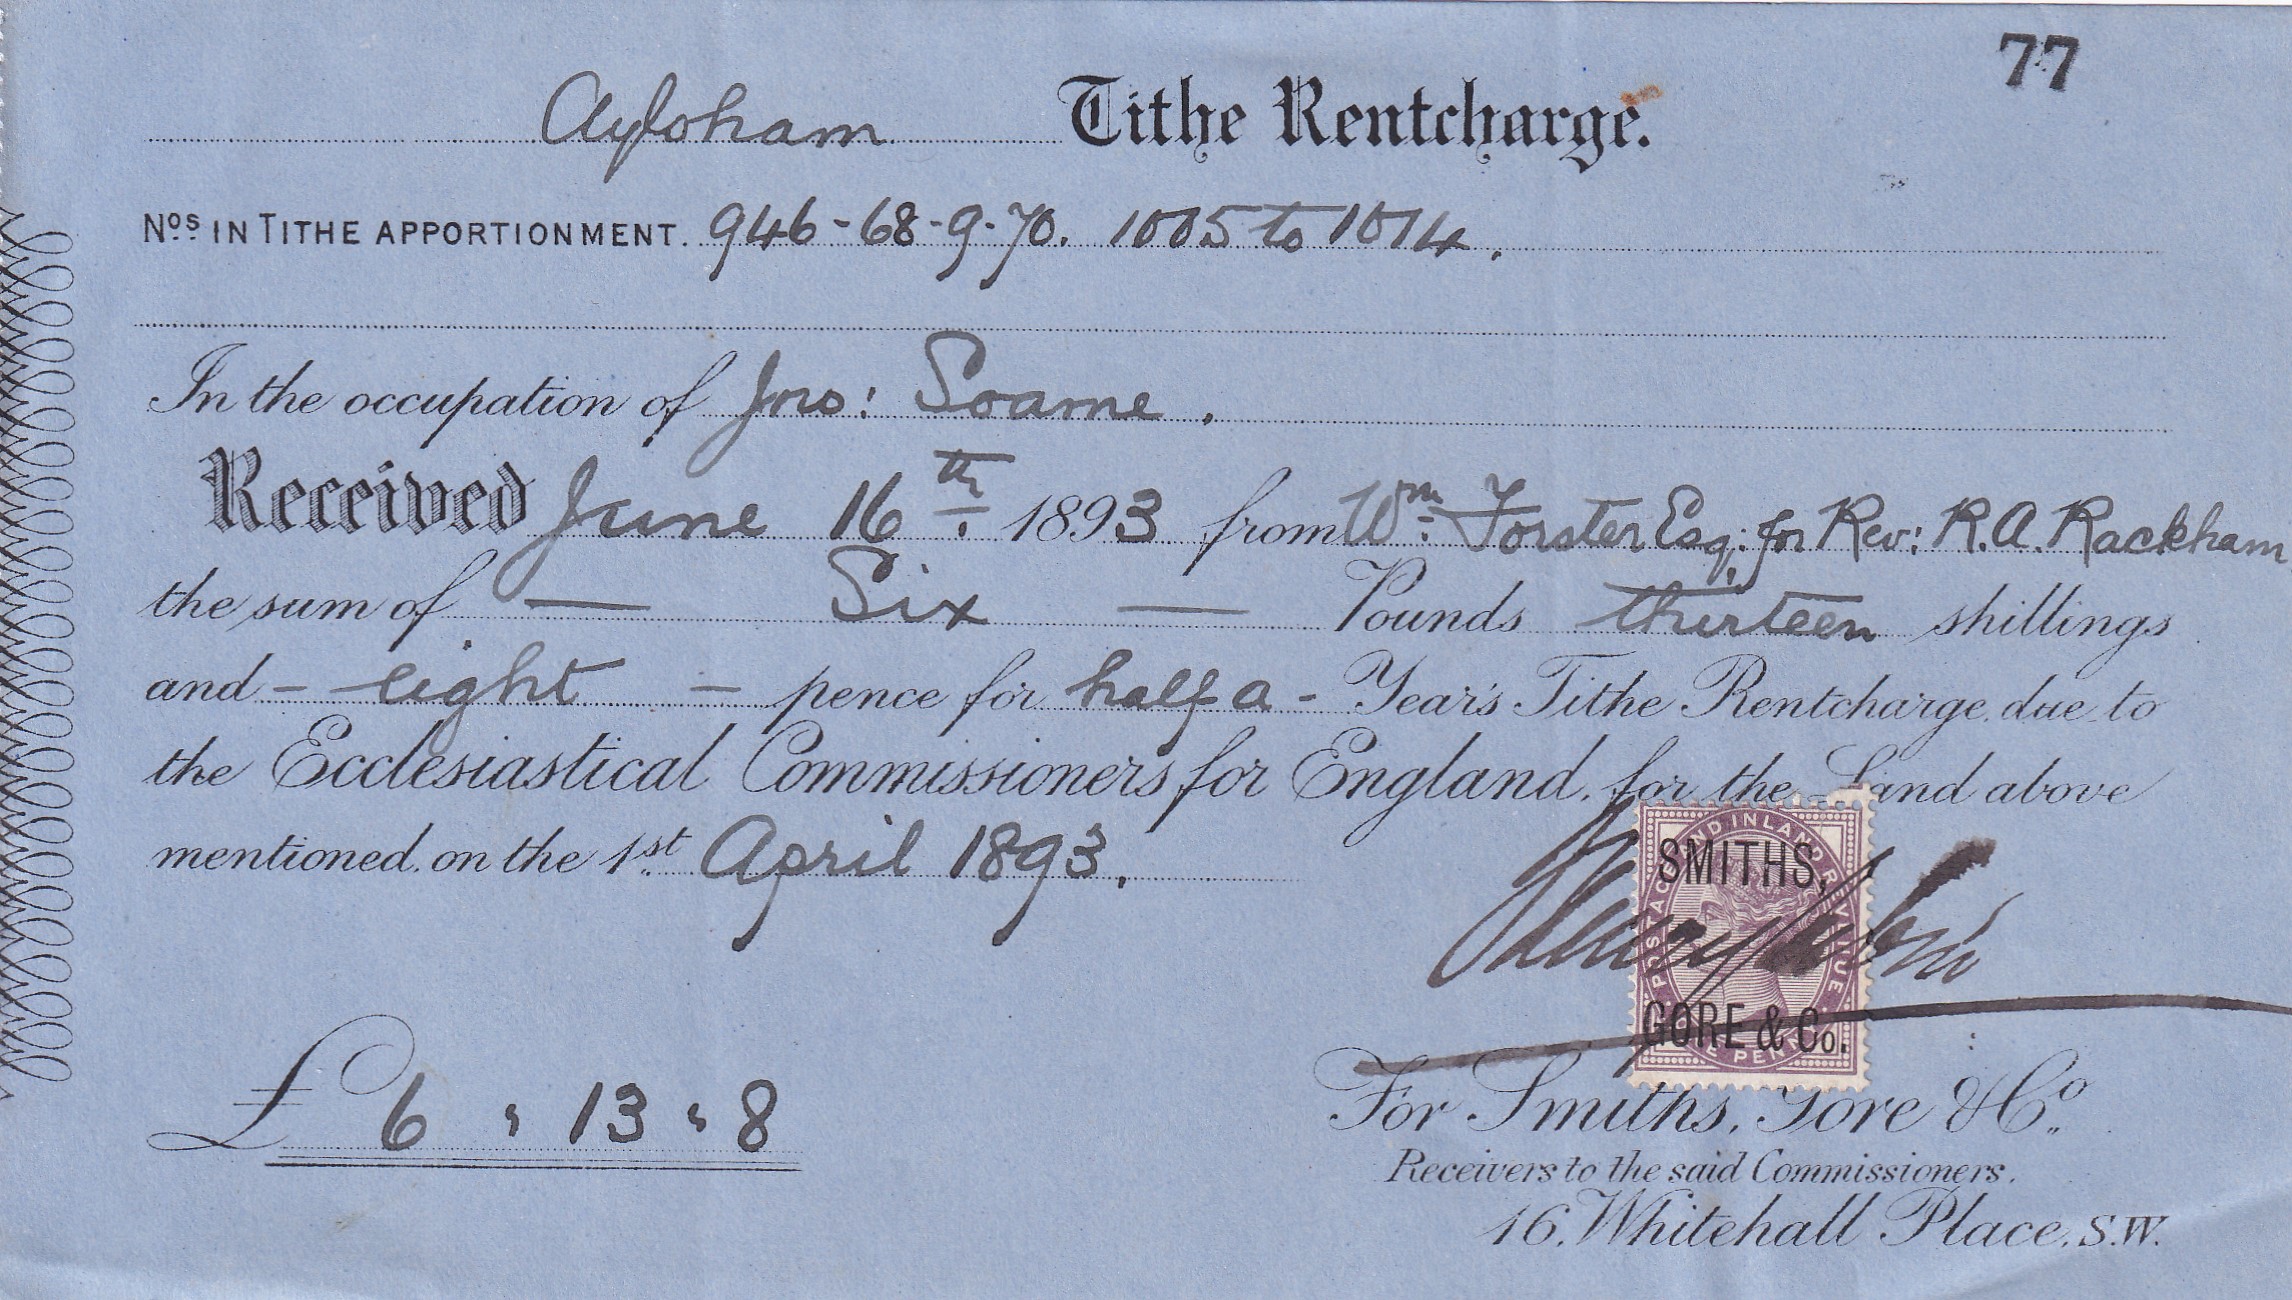 77
Aylsham Tithe Rentcharge.
Nos IN TITHE APPORTIONMENT. 946-68-9-70. 1005 to 1014.
In the occupation of Jno: Soame.
Received June 16th. 1893 from Wm: Forster Esq: for Rev: R.A. Rackham
the sum of — Six — Pounds thirteen shillings
and - eight - pence for half a - Year's Tithe Rentcharge due to
the Ecclesiastical Commissioners for England, for the Land above
mentioned on the 1st April 1893.
POSTAGE AND INLAND REVENUE
SMITHS,
GORE & Co.
ONE PENNY
£ 6 , 13 , 8
For Smiths, Gore & Co.
Receivers to the said Commissioners.
16, Whitehall Place, S.W.